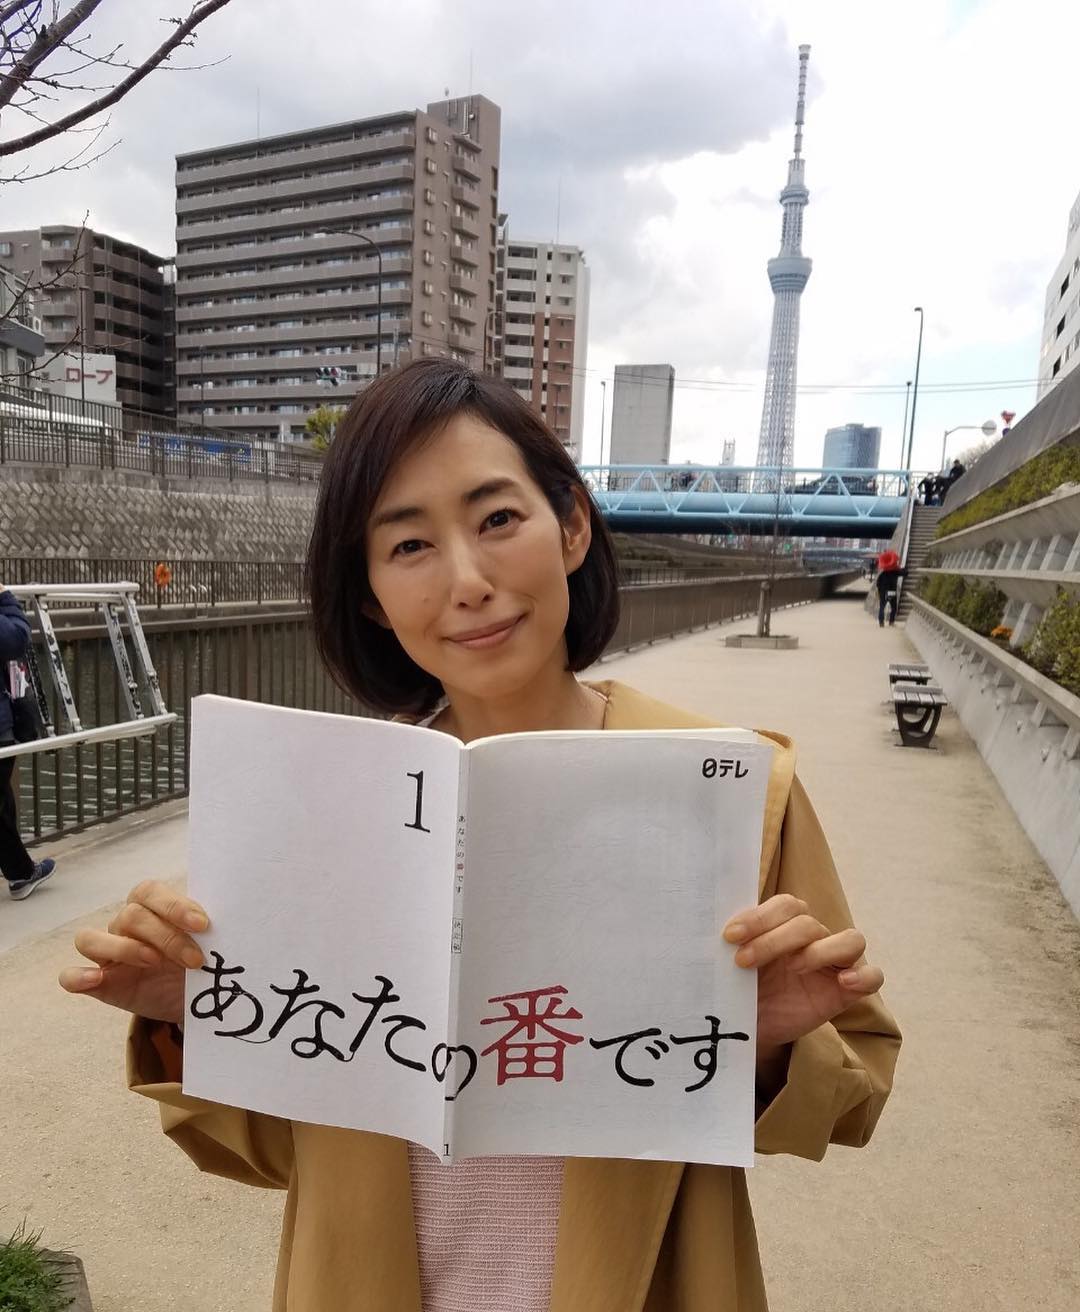 ロープ
1
日テレ
あなたの番です
決定稿
あなたの番です
1